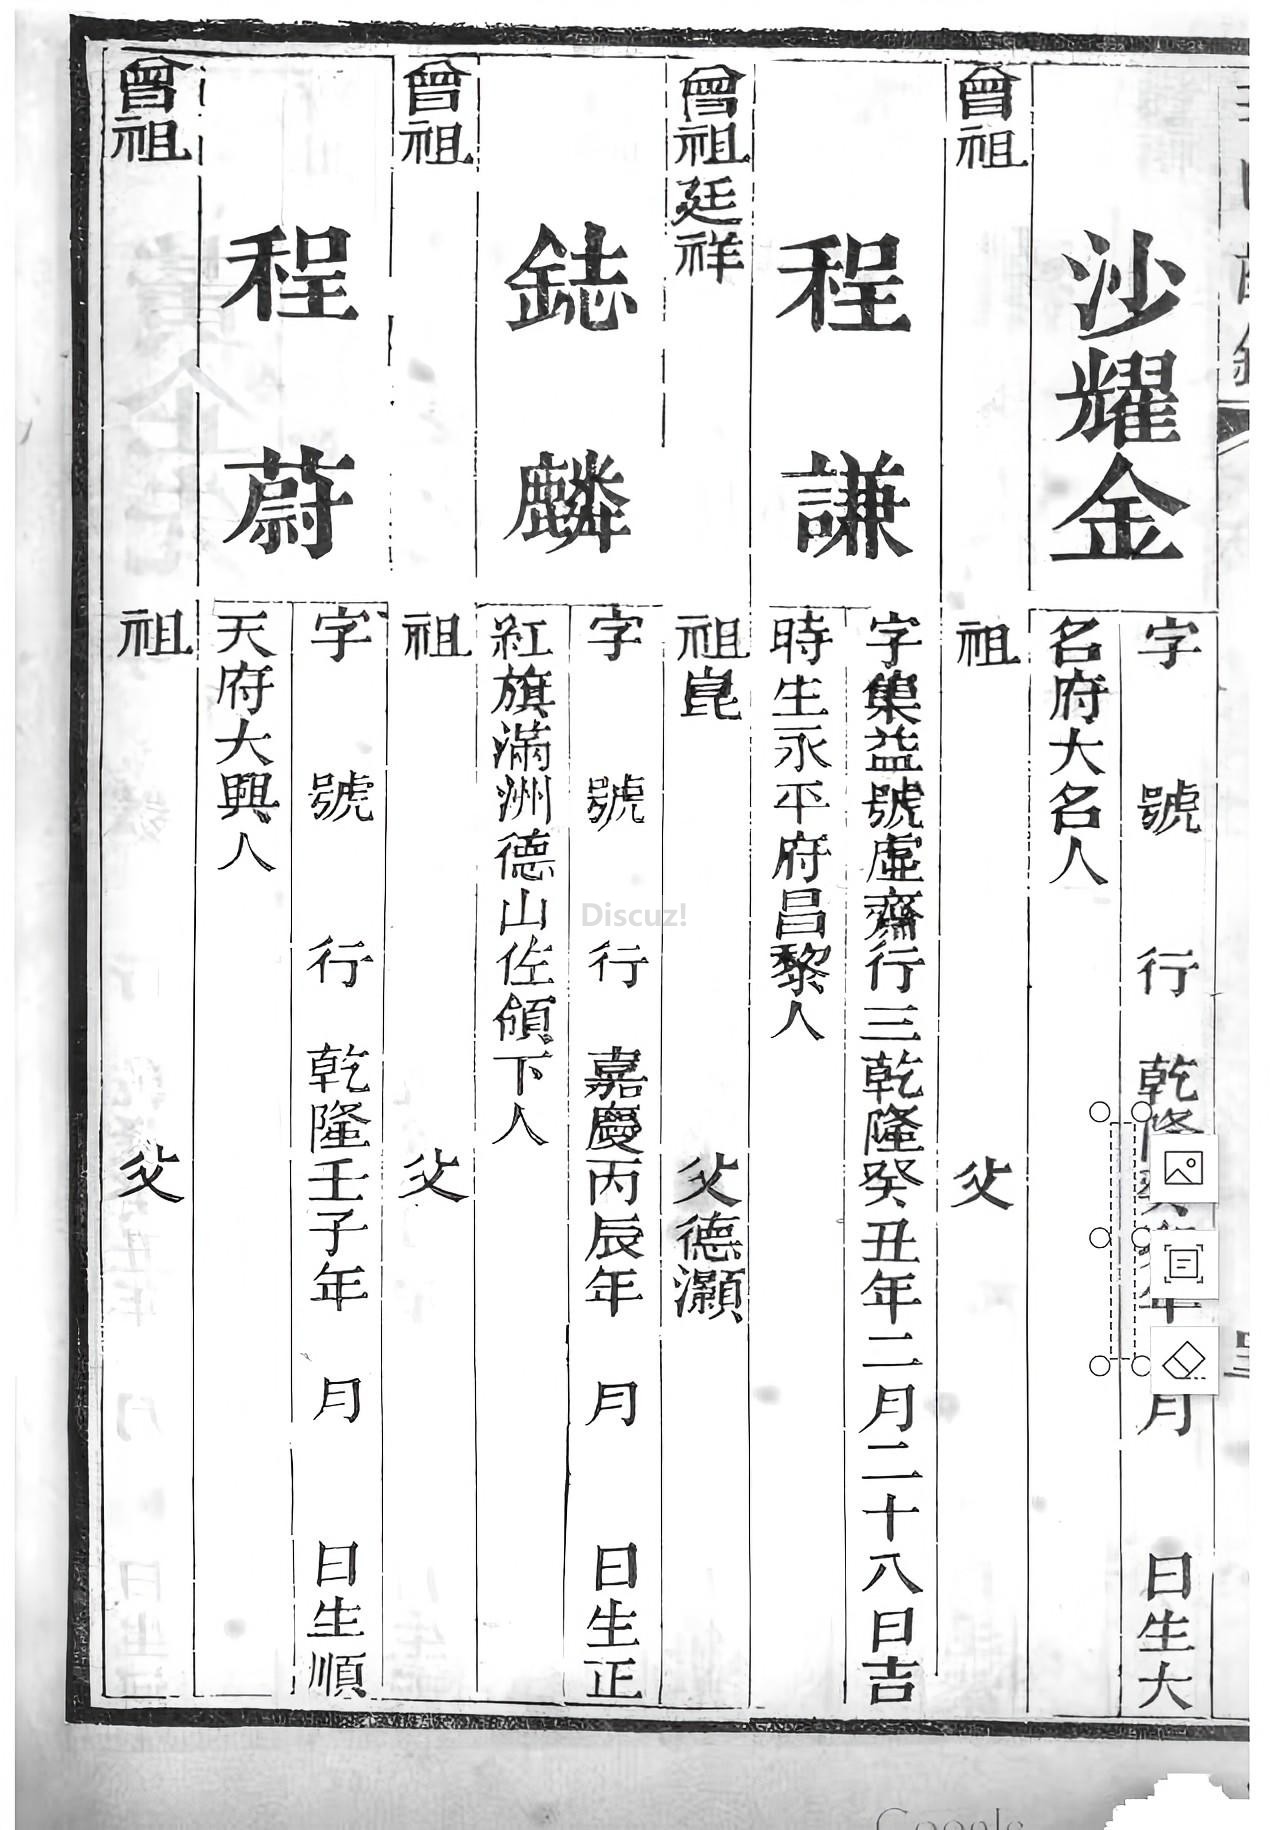 沙耀金
字 號 行 乾隆癸 年 月 日生大
名府大名人
曾祖 祖 父
程謙
字集益號虛齋行三乾隆癸丑年二月二十八日吉
時生永平府昌黎人
曾祖廷祥 祖崑 父德灝
鋕麟
字 號 行 嘉慶丙辰年 月 日生正
紅旗滿洲德山佐領下人
曾祖 祖 父
程蔚
字 號 行 乾隆壬子年 月 日生順
天府大興人
曾祖 祖 父
Discuz!
Google